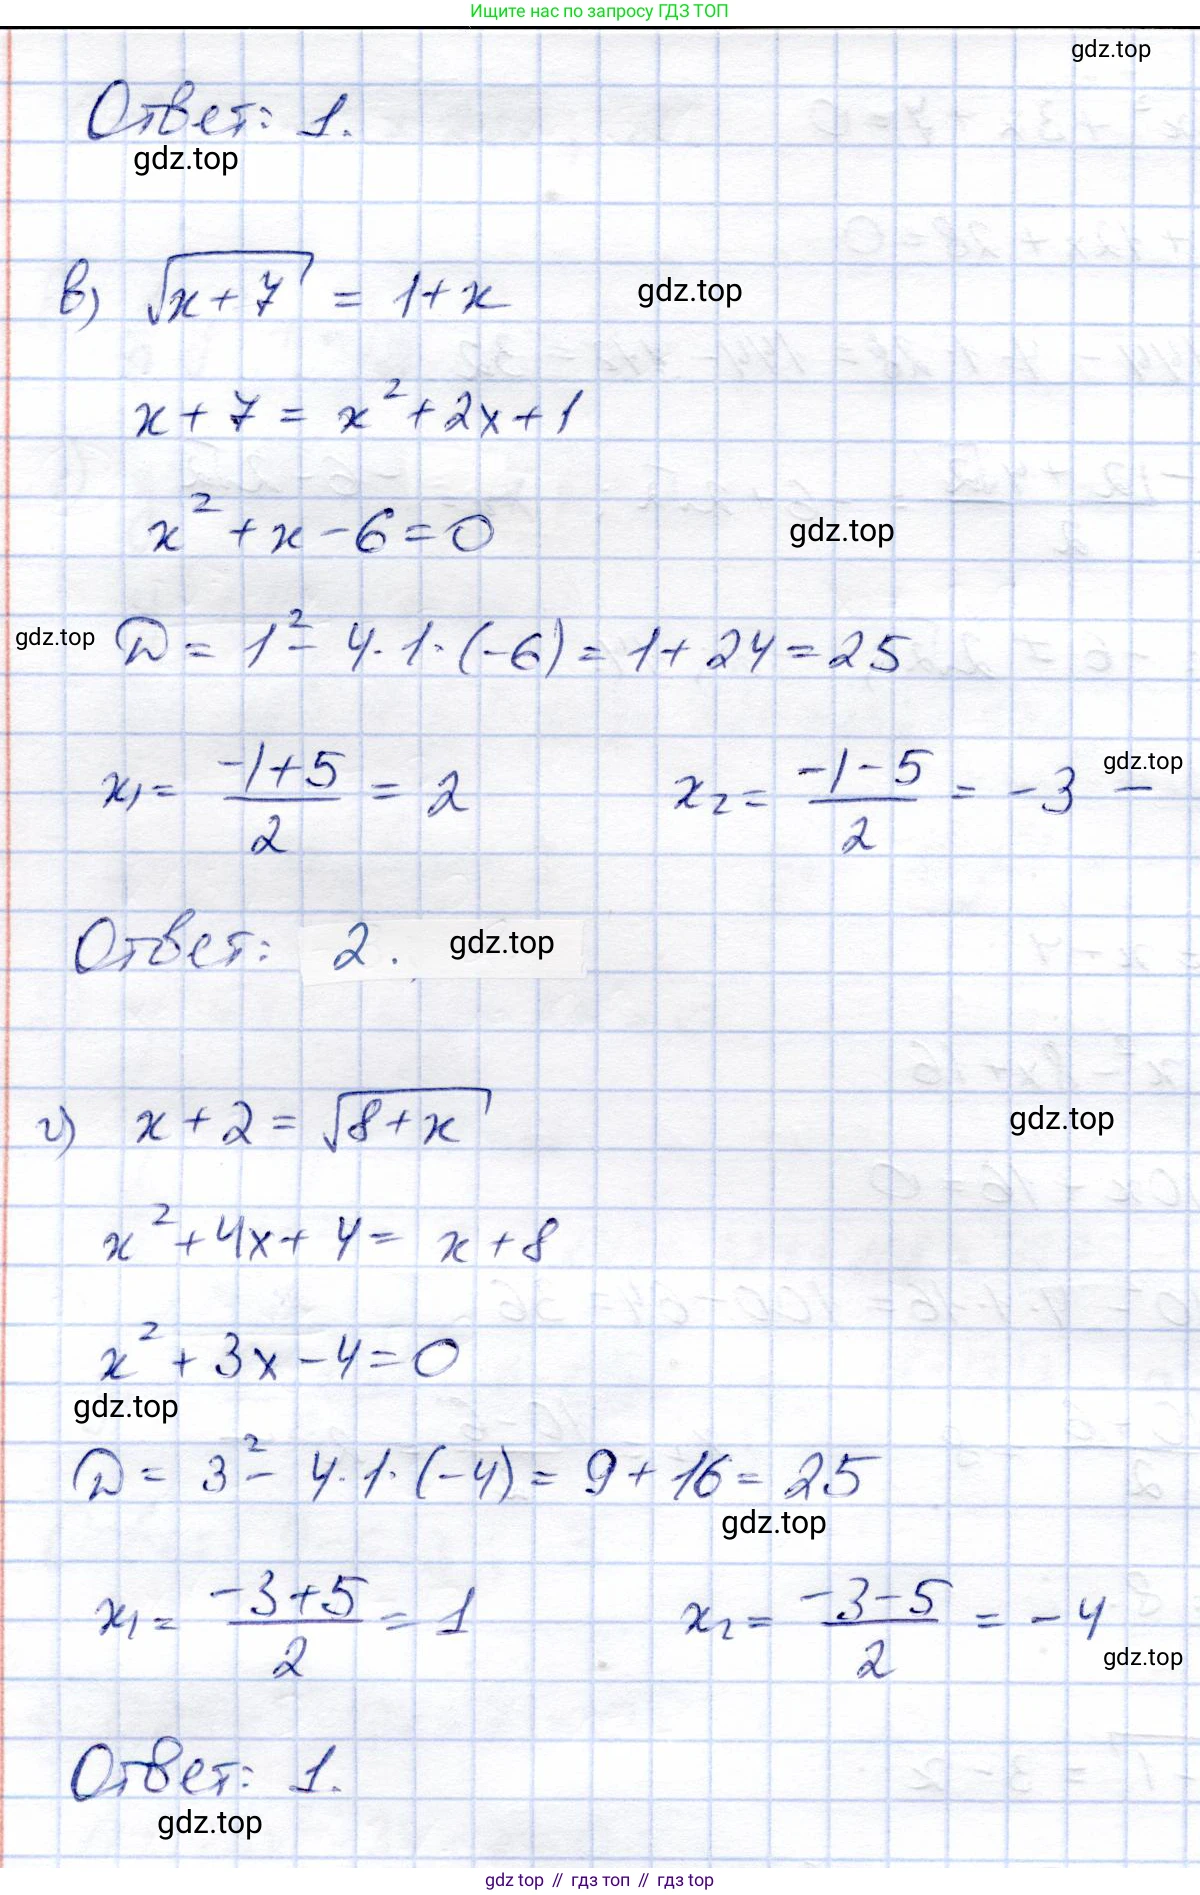 Ищите нас по запросу ГДЗ ТОП
gdz.top
Ответ: 1.
gdz.top
в) √x+7 = 1+x
gdz.top
x+7 = x²+2x+1
x²+x-6=0
gdz.top
gdz.top
D = 1²-4·1·(-6)=1+24=25
x₁= -1+5/2 = 2 x₂= -1-5/2 = -3 -
gdz.top
Ответ: 2.
gdz.top
г) x+2=√8+x
gdz.top
x²+4x+4= x+8
x²+3x-4=0
gdz.top
D= 3²-4·1·(-4)=9+16=25
gdz.top
x₁= -3+5/2 = 1 x₂= -3-5/2 = -4
gdz.top
Ответ: 1.
gdz.top
gdz top // гдз топ // gdz top